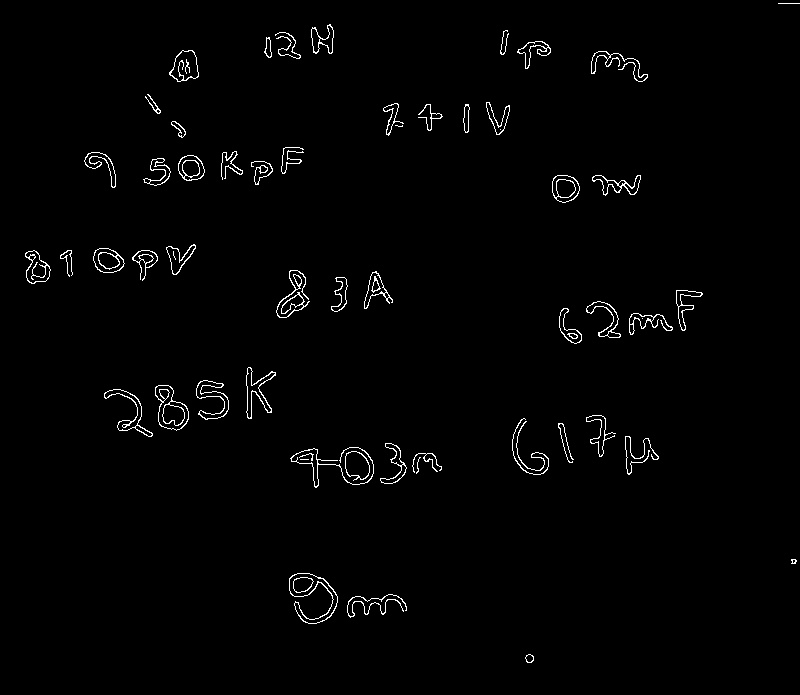 12H
1p m
741V
950KpF
0m
810pV
83A
62mF
285K
403n
617μ
9m